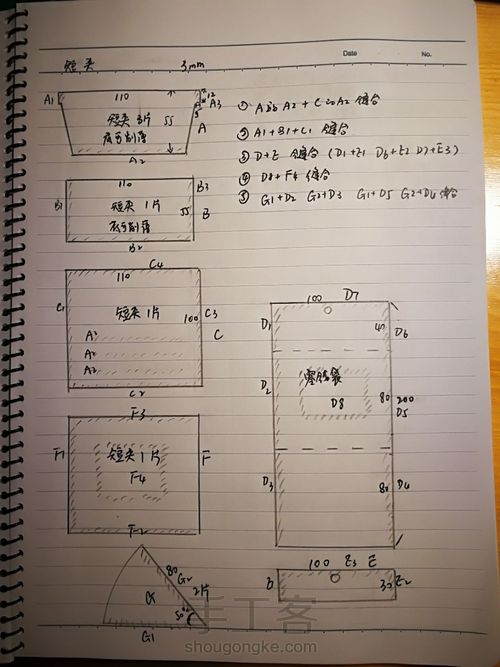 Date
No.
短夹 3mm
A1 110 12 A3
5
短夹 3片 55 A
底可削薄
A2
110 B3
B1 短夹 1片 55 B
底可削薄
B2
C4
110
C1 短夹 1片 100 C3
C
A2
A2
A2
C2
F3
F1 短夹 1片 F
F4
F2
80 G2
2片
G 50°
G1
① A的A2 + C的A2 缝合
② A1+B1+C1 缝合
③ D+E 缝合 (D1+E1 D6+E2 D7+E3)
④ D8+F4 缝合
⑤ G1+D2 G2+D3 G1+D5 G2+D4 缝合
100 D7
D1 40 D6
零钱袋
D2 D8 80 200
D5
D3 80 D4
100 E3 E
30 E2
手工客
shougongke.com